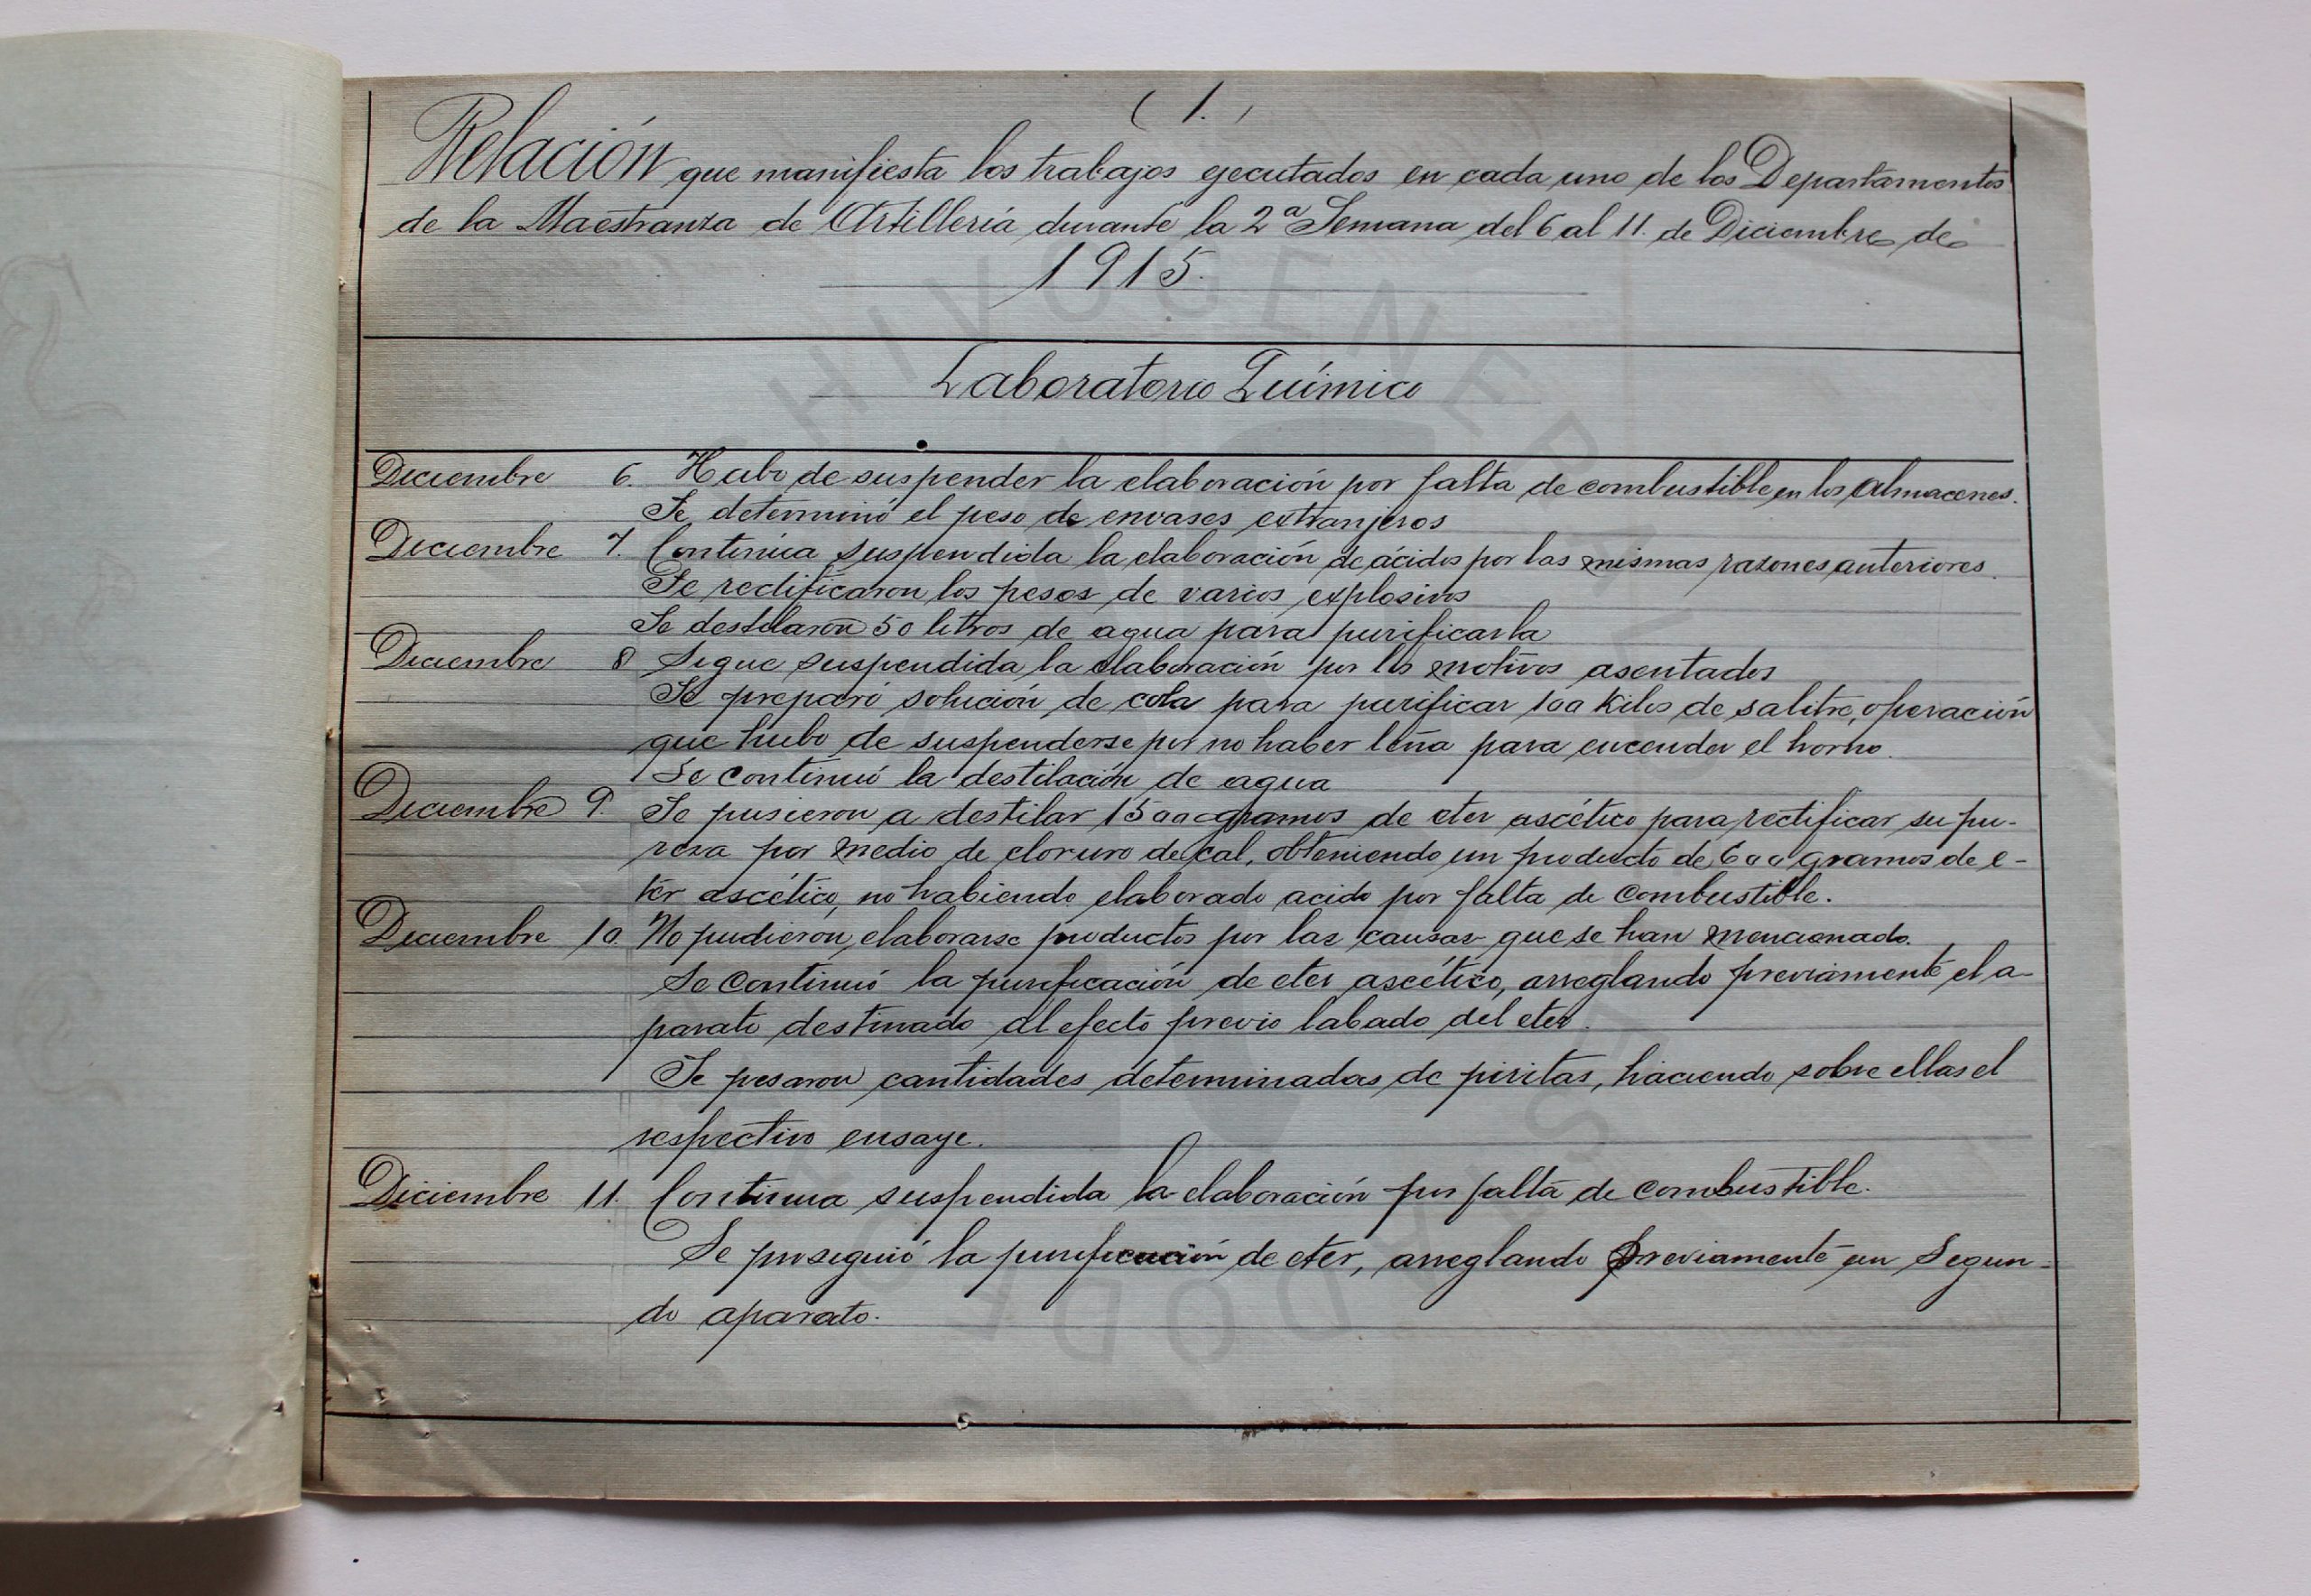 ( 1. )
Relación que manifiesta los trabajos ejecutados en cada uno de los Departamentos
de la Maestranza de Artillería durante la 2ª Semana del 6 al 11. de Diciembre de
1915.
Laboratorio Químico
Diciembre 6. Hubo de suspender la elaboración por falta de combustible en los almacenes.
Se determinó el peso de envases extranjeros
Diciembre 7. Continúa suspendida la elaboración de ácidos por las mismas razones anteriores.
Se rectificaron los pesos de varios explosivos
Se destilaron 50 litros de agua para purificarla
Diciembre 8 Sigue suspendida la elaboración por los motivos asentados
Se preparó solución de cola para purificar 100 Kilos de salitre, operación
que hubo de suspenderse por no haber leña para encender el horno.
Se continuó la destilación de agua
Diciembre 9. Se pusieron a destilar 1500 gramos de eter ascético para rectificar su pu-
reza por medio de cloruro de cal, obteniendo un producto de 600 gramos de e-
ter ascético, no habiendo elaborado acido por falta de combustible.
Diciembre 10. No pudieron elaborarse productos por las causas que se han mencionado.
Se continuó la purificación de eter ascético, arreglando previamente el a-
parato destinado al efecto previo labado del eter.
Se pesaron cantidades determinadas de piritas, haciendo sobre ellas el
respectivo ensaye.
Diciembre 11. Continua suspendida la elaboración por falta de combustible.
Se prosiguió la purificación de eter, arreglando previamente un segun-
do aparato.